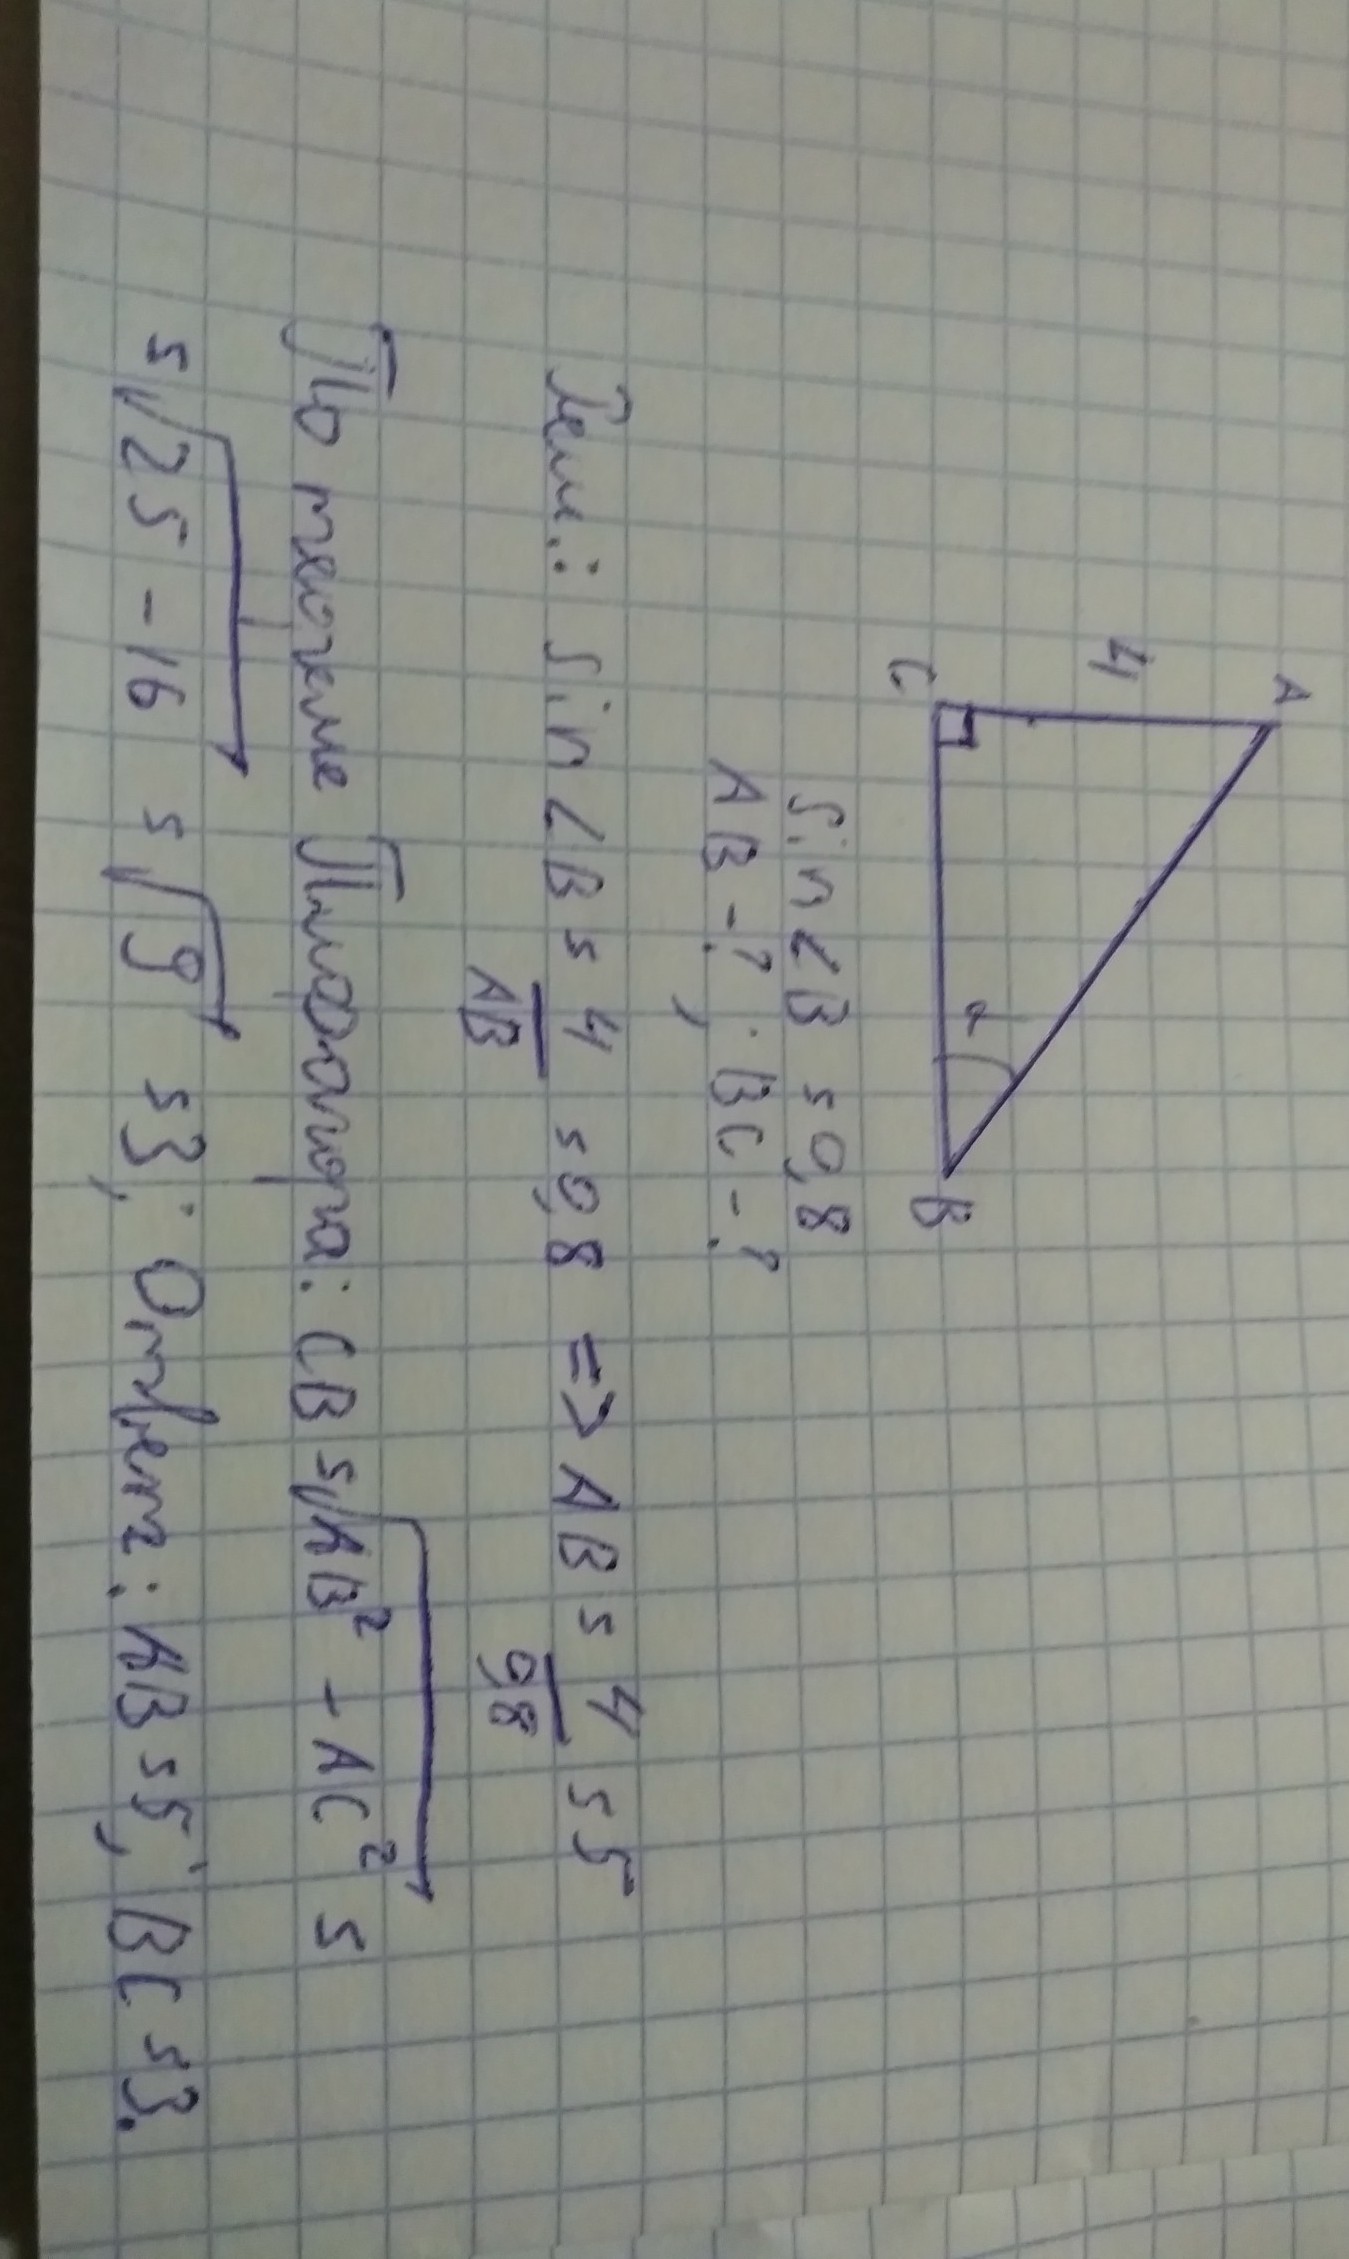 A
4
C
α
B
Sin∠B = 0,8
AB - ?; BC - ?
Реш.: Sin∠B = 4/AB = 0,8 => AB = 4/0,8 = 5
По теореме Пифагора: CB = √AB² - AC² =
= √25 - 16 = √9 = 3; Ответ: AB = 5; BC = 3.